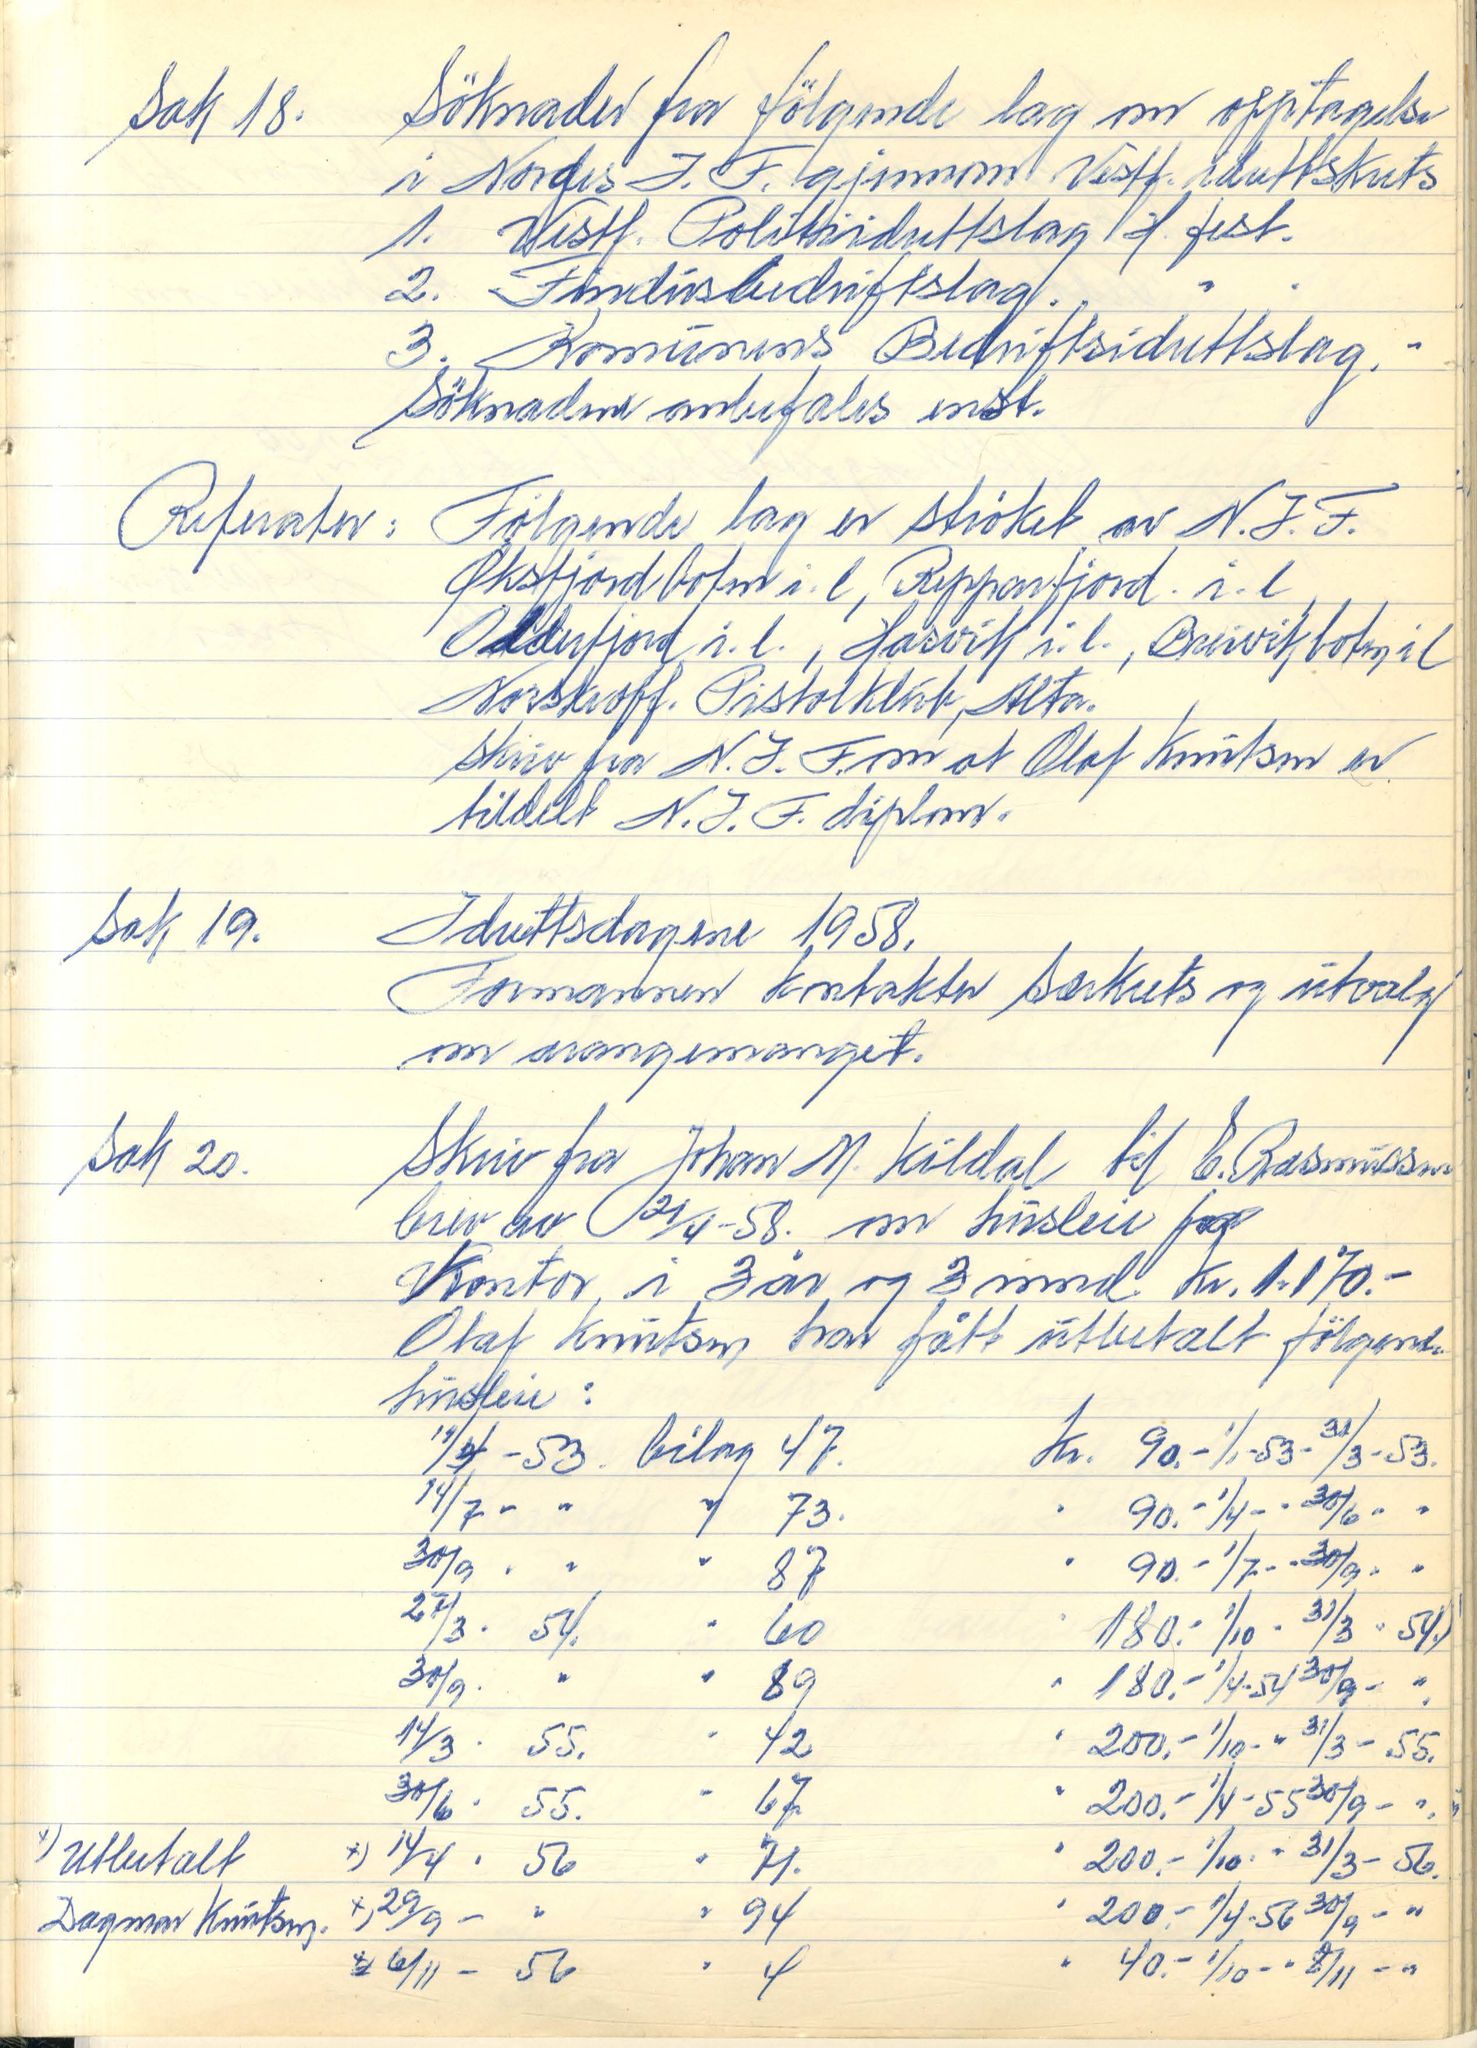 Sak 18. Söknader fra fölgende lag om opptagelse
i Norges I. F. gjennom Vestf. idrettskrets
1. Vestf. Politiidrettslag H. fest.
2. Findusbedriftslag. " "
3. Komunens Bedriftsidrettslag. "
Söknadene anbefales enst.
Referater: Fölgende lag er ströket av N.I.F.
Øksfjordbotn i.l, Repparfjord. i.l
Olderfjord i.l., Hasvik i.l., Breivikbotn il
Norskroff. Pistolklub, Alta.
Skriv fra N.I.F. om at Olaf Knutsen er
tildelt N.I.F. diplom.
Sak 19. Idrettsdagene 1958.
Formannen kontakter Særkrets og utvalg
om arangemanget.
Sak 20. Skriv fra Johan M. Kildal til E. Rasmussen
brev av 21/4-58. om husleie for
Kontor i 3 år og 3 mnd. Kr. 1.170.-
Olaf Knutsen har fått utbetalt fölgende
husleie:
-53. bilag 47. Kr. 90.- 1/1-53- 31/3-53.
14/7- " " 73. " 90.- 1/4- " 30/6- "
30/9. " " 87 " 90.- 1/7- " 30/9- "
27/3. 54. " 60 " 180.- 1/10- 31/3 - 54.)
30/9. " " 89 " 180.- 1/4-54 30/9- ".
14/3. 55. " 42 " 200.- 1/10- " 31/3- 55.
30/6. 55. " 67 " 200.- 1/4-55 30/9- ".
x) Utbetalt x) 14/4. 56 " 71. " 200.- 1/10- " 31/3-56.
Dagmar Knutsen. x) 29/9- " " 94 " 200.- 1/4-56 30/9- "
x 6/11- 56 " 4 " 40.- 1/10- " 8/11- "